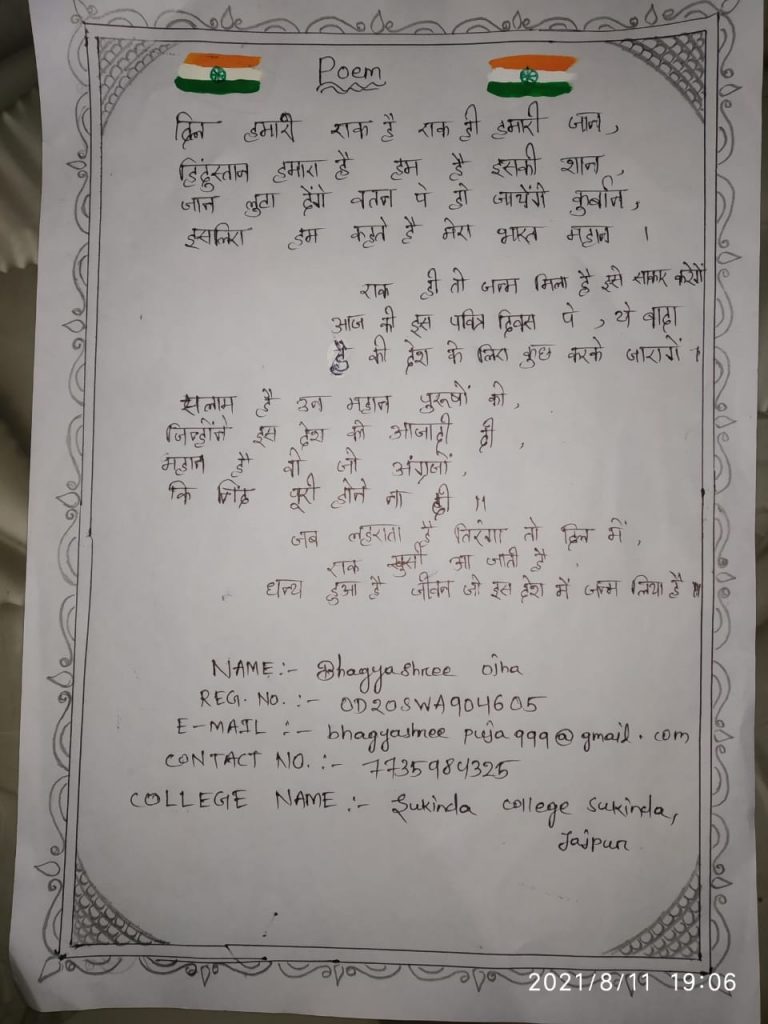 Poem
दिल हमारी एक है एक ही हमारी जान,
हिंदुस्तान हमारा है हम है इसकी शान,
जान लुटा देंगे वतन पे हो जायेंगे कुर्बान,
इसलिए हम कहते है मेरा भारत महान ।
एक ही तो जन्म मिला है इसे साकार करेगें
आज की इस पवित्र दिवस पे , ये वादा
है की देश के लिए कुछ करके जाएगें ।
सलाम है उन महान पुरूषों को,
जिन्होंने इस देश को आजादी दी ,
महान है वो जो अंग्रजों,
कि जिद पूरी होने ना दी ॥
जब लहराता है तिरंगा तो दिल में,
एक खुसी आ जाती है .
धन्य हुआ है जीवन जो इस देश में जन्म लिया है ॥
NAME:- Bhagyashree ojha
REG. NO. :- OD20SWA904605
E-MAIL :- bhagyashree puja999@gmail.com
CONTACT NO. :- 7735984325
COLLEGE NAME :- Sukinda college sukinda,
Jajpur
2021/8/11 19:06